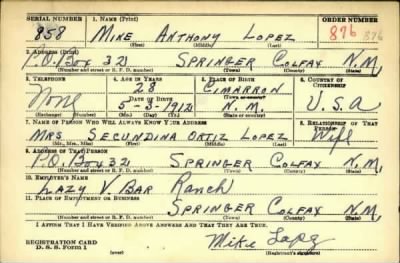 SERIAL NUMBER 1. NAME (Print) ORDER NUMBER
858 MIKE ANTHONY LOPEZ 876 876
(First) (Middle) (Last)
2. ADDRESS (Print)
P.O. Box 32 SPRINGER COLFAX N.M.
(Number and street or R. F. D. number) (Town) (County) (State)
3. TELEPHONE 4. AGE IN YEARS 5. PLACE OF BIRTH 6. COUNTRY OF CITIZENSHIP
None 28 CIMARRON U.S.A
DATE OF BIRTH (Town or county)
5-3-1912 N.M.
(Exchange) (Number) (Mo.) (Day) (Yr.) (State or country)
7. NAME OF PERSON WHO WILL ALWAYS KNOW YOUR ADDRESS 8. RELATIONSHIP OF THAT PERSON
MRS SECUNDINA ORTIZ LOPEZ Wife
(Mr., Mrs., Miss) (First) (Middle) (Last)
9. ADDRESS OF THAT PERSON
P.O. Box 32 SPRINGER COLFAX N.M.
(Number and street or R. F. D. number) (Town) (County) (State)
10. EMPLOYER'S NAME
LAZY V. BAR Ranch
11. PLACE OF EMPLOYMENT OR BUSINESS
SPRINGER COLFAX N.M.
(Number and street or R. F. D. number) (Town) (County) (State)
I AFFIRM THAT I HAVE VERIFIED ABOVE ANSWERS AND THAT THEY ARE TRUE.
REGISTRATION CARD
D. S. S. Form 1 Mike Lopez
(Registrant's signature)